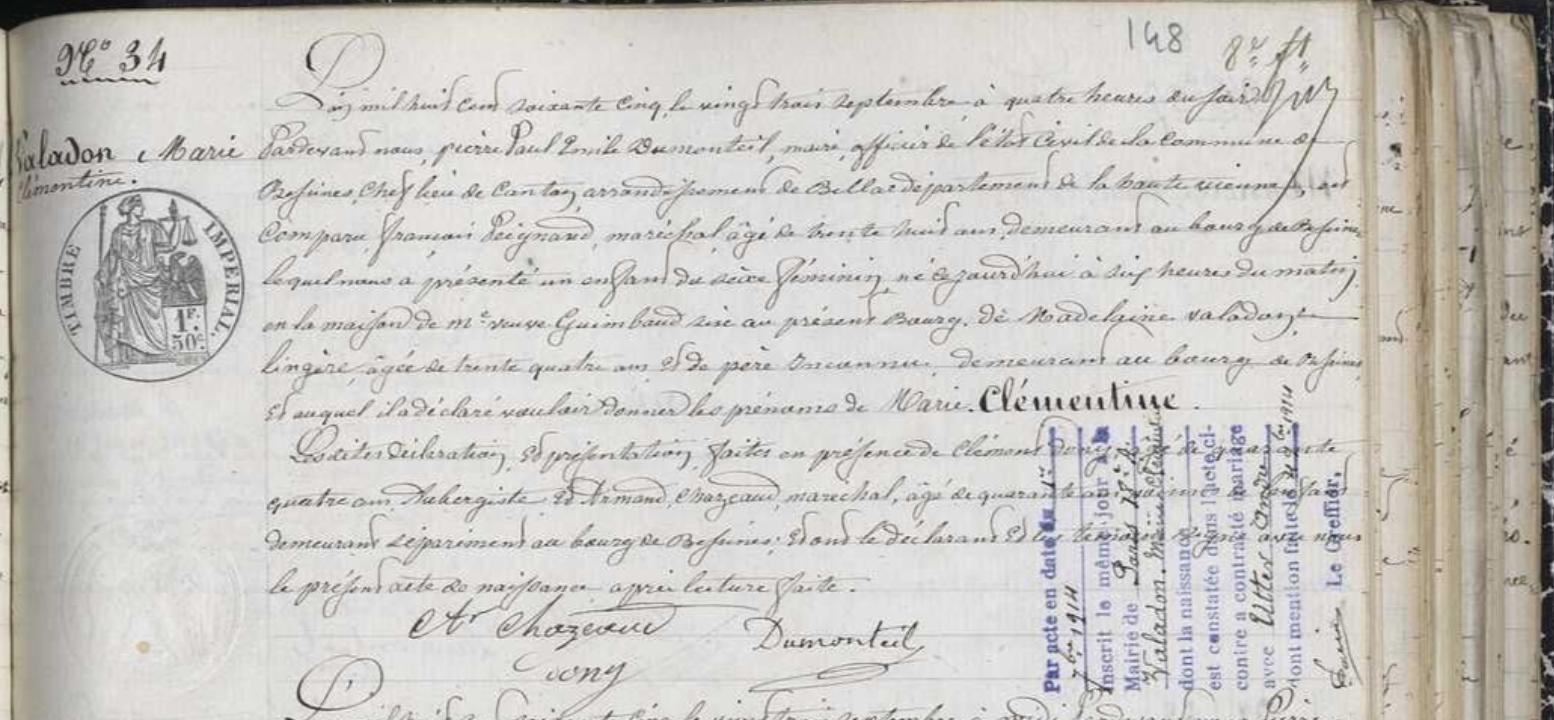 148
Nº 34
Valadon Marie
Clémentine.
TIMBRE IMPERIAL
1F.
50c.
L'an mil huit cent soixante cinq, le vingt trois septembre à quatre heures du soir
Pardevant nous, pierre Paul Emile Dumonteil, maire, officier de l'état Civil de la Commune de
Bessines, Chef lieu de Canton, arrondissement de Bellac département de la haute vienne, est
Comparu, françois Peignaud, maréchal, âgé de trente huit ans, demeurant au bourg de Bessines
lequel nous a présenté un enfant du seixe féminin, né ce jourd'hui à six heures du matin
en la maison de me veuve Guimbaud sise au présent Bourg. de Madelaine valadon,
lingère, âgée de trente quatre ans et de père Inconnu, demeurant au bourg de Bessines,
Et auquel il a déclaré vouloir donner les prénoms de Marie. Clémentine.
Lesdites déclaration, Et présentation, faites en présence de Clément dony, âgé de quarante
quatre ans Aubergiste, Et Armand Chazeaud, marechal, âgé de quarante ans
demeurant séparement au bourg de Bessines; Et ont le déclarant Et les témoins signé avec nous
le présent acte de naissance après lecture faite.
Ad Chazeaud Dumonteil
dony
Par acte en date du 1er
7bre 1914
inscrit le même jour à la
Mairie de Paris 18e
Valadon Marie Clémentine
dont la naissance
est constatée dans l'acte ci-
contre a contracté mariage
avec Utter André
dont mention faite le 1914
Le Greffier,